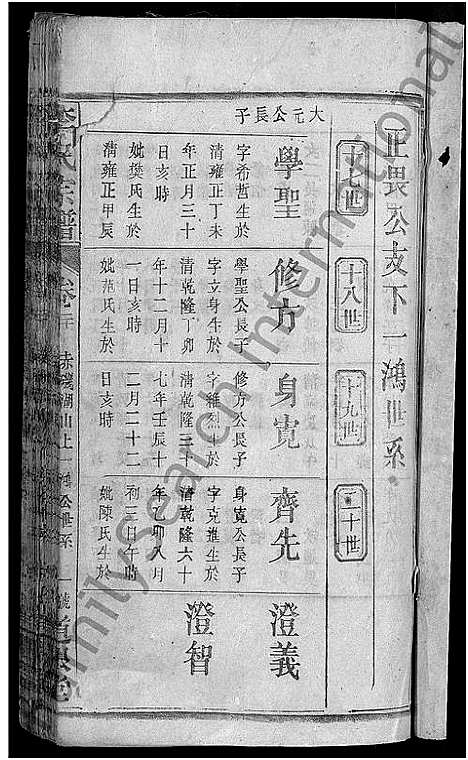 止畏公支下一鴻世系
十七世
十八世
十九世
二十世
大元公長子
學聖
字希哲生於
清雍正丁未
年正月三十
日亥時
妣樊氏生於
清雍正甲辰
修方
學聖公長子
字立身生於
清乾隆丁卯
年十二月十
一日亥時
妣范氏生於
身寬
修方公長子
清乾隆三十
七年壬辰十
二月二十二
日亥時
齊先
身寬公長子
字克進生於
清乾隆六十
年乙卯八月
初三日午時
妣陳氏生於
澄義
澄智
氏宗譜
卷
FamilySearch International